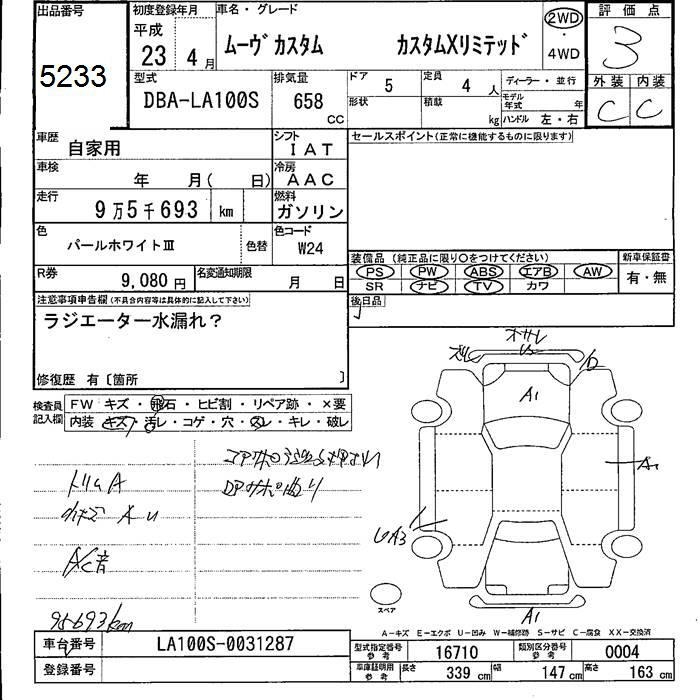 出品番号
5233
初度登録年月
平成
23年 4月
車名・グレード
ムーヴカスタム カスタムXリミテッド
2WD
・
4WD
評価点
3
外装 内装
C C
型式
DBA-LA100S
排気量
658
CC
ドア
5
定員
4人
形状
積載
kg
ディーラー・並行
モデル年式 年
ハンドル 左・右
車歴
自家用
シフト
IAT
車検
年 月( 日)
冷房
AAC
走行
9万5千693 km
燃料
ガソリン
色
パールホワイトⅢ
色替
色コード
W24
R券
9,080円
名変通知期限
月 日
セールスポイント(正常に機能するものに限ります)
装備品(純正品に限り○をつけてください)
PS PW ABS エアB AW
SR ナビ TV カワ
新車保証書
有・無
後日品
注意事項申告欄(不具合内容等は具体的に記入して下さい)
ラジエーター水漏れ?
修復歴 有〔箇所 〕
検査員記入欄
FW キズ・飛石・ヒビ割・リペア跡・×要
内装 キズ・汚レ・コゲ・穴・スレ・キレ・破レ
トリムA
A/C音
95693km
A1
A1
UA3
A1
スペア
A-キズ E-エクボ U-凹み W-補修跡 S-サビ C-腐食 XX-交換済
車台番号
LA100S-0031287
登録番号
型式指定番号 参考
16710
類別区分番号 参考
0004
車庫証明用 参考
長さ 339 cm 幅 147 cm 高さ 163 cm